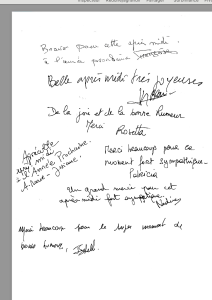 Bravo pour cette après midi.
à l'année prochaine
Belle après midi très joyeuses
De la joie et de la bonne humeur
Merci Rosetta
Agréable
après midi
à l'Année Prochaine
Merci beaucoup pour ce
moment fort sympathique
Patricia
Un grand merci pour cet
après midi fort sympathique
Nadine
Merci beaucoup pour le super moment de
bonne humeur,